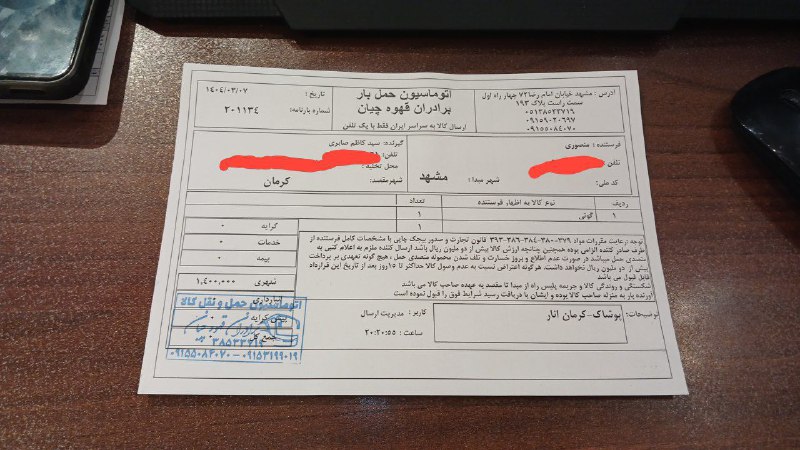 آدرس : مشهد خیابان امام رضا۷۲ چهار راه اول
سمت راست پلاک ۱۹۳
۰۵۱۳۸۵۳۳۷۱۹
۰۹۱۵۹۰۲۰۶۹۷
۰۹۱۵۵۰۸۴۰۷۰
اتوماسیون حمل بار
برادران قهوه چیان
ارسال کالا به سراسر ایران فقط با یک تلفن
تاریخ : ۱۴۰۴/۰۳/۰۷
شماره بارنامه: ۲۰۱۱۳۴
فرستنده : منصوری
تلفن :
کد ملی :
شهر مبدا : مشهد
گیرنده: سید کاظم صابری
تلفن:
محل تخلیه :
شهرمقصد: کرمان
ردیف نوع کالا به اظهار فرستنده تعداد
۱ گونی ۱
۱
کرایه ۰
خدمات ۰
بیمه ۰
شهری ۱,۴۰۰,۰۰۰
انبارداری
پیش کرایه ۰
جمع کل
توجه :رعایت مقررات مواد ۳۷۹-۳۸۰-۳۸۴-۳۸۶-۳۹۳ قانون تجارت و صدور بیجک چاپی با مشخصات کامل فرستنده از
طرف صادر کننده الزامی بوده همچنین چنانچه ارزش کالا بیش از دو ملیون ریال باشد ارسال کننده ملزم به اعلام کتبی به
متصدی حمل میباشد در صورت عدم اطلاع و بروز خسارت و تلف شدن محموله متصدی حمل ، هیچ گونه تعهدی بر پرداخت
بیش از دو ملیون ریال نخواهد داشت. هرگونه اعتراض نسبت به عدم وصول کالا حداکثر تا ۱۵روز بعد از تاریخ این قرارداد
قابل قبول می باشد
شکستگی و روندگی کالا و جریمه پلیس راه از مبدا تا مقصد به عهده صاحب کالا می باشد
آورنده بار به منزله صاحب کالا بوده و ایشان با دریافت رسید شرایط فوق را قبول نموده است
توضیحات: پوشاک-کرمان انار
کاربر : مدیریت ارسال
ساعت : ۲۰:۲۰:۵۵
اتوماسیون حمل و نقل کالا
برادران قهوه چیان
۳۸۵۳۳۷۱۹
۰۹۱۵۵۰۸۴۰۷۰ - ۰۹۱۵۳۱۹۹۰۱۹